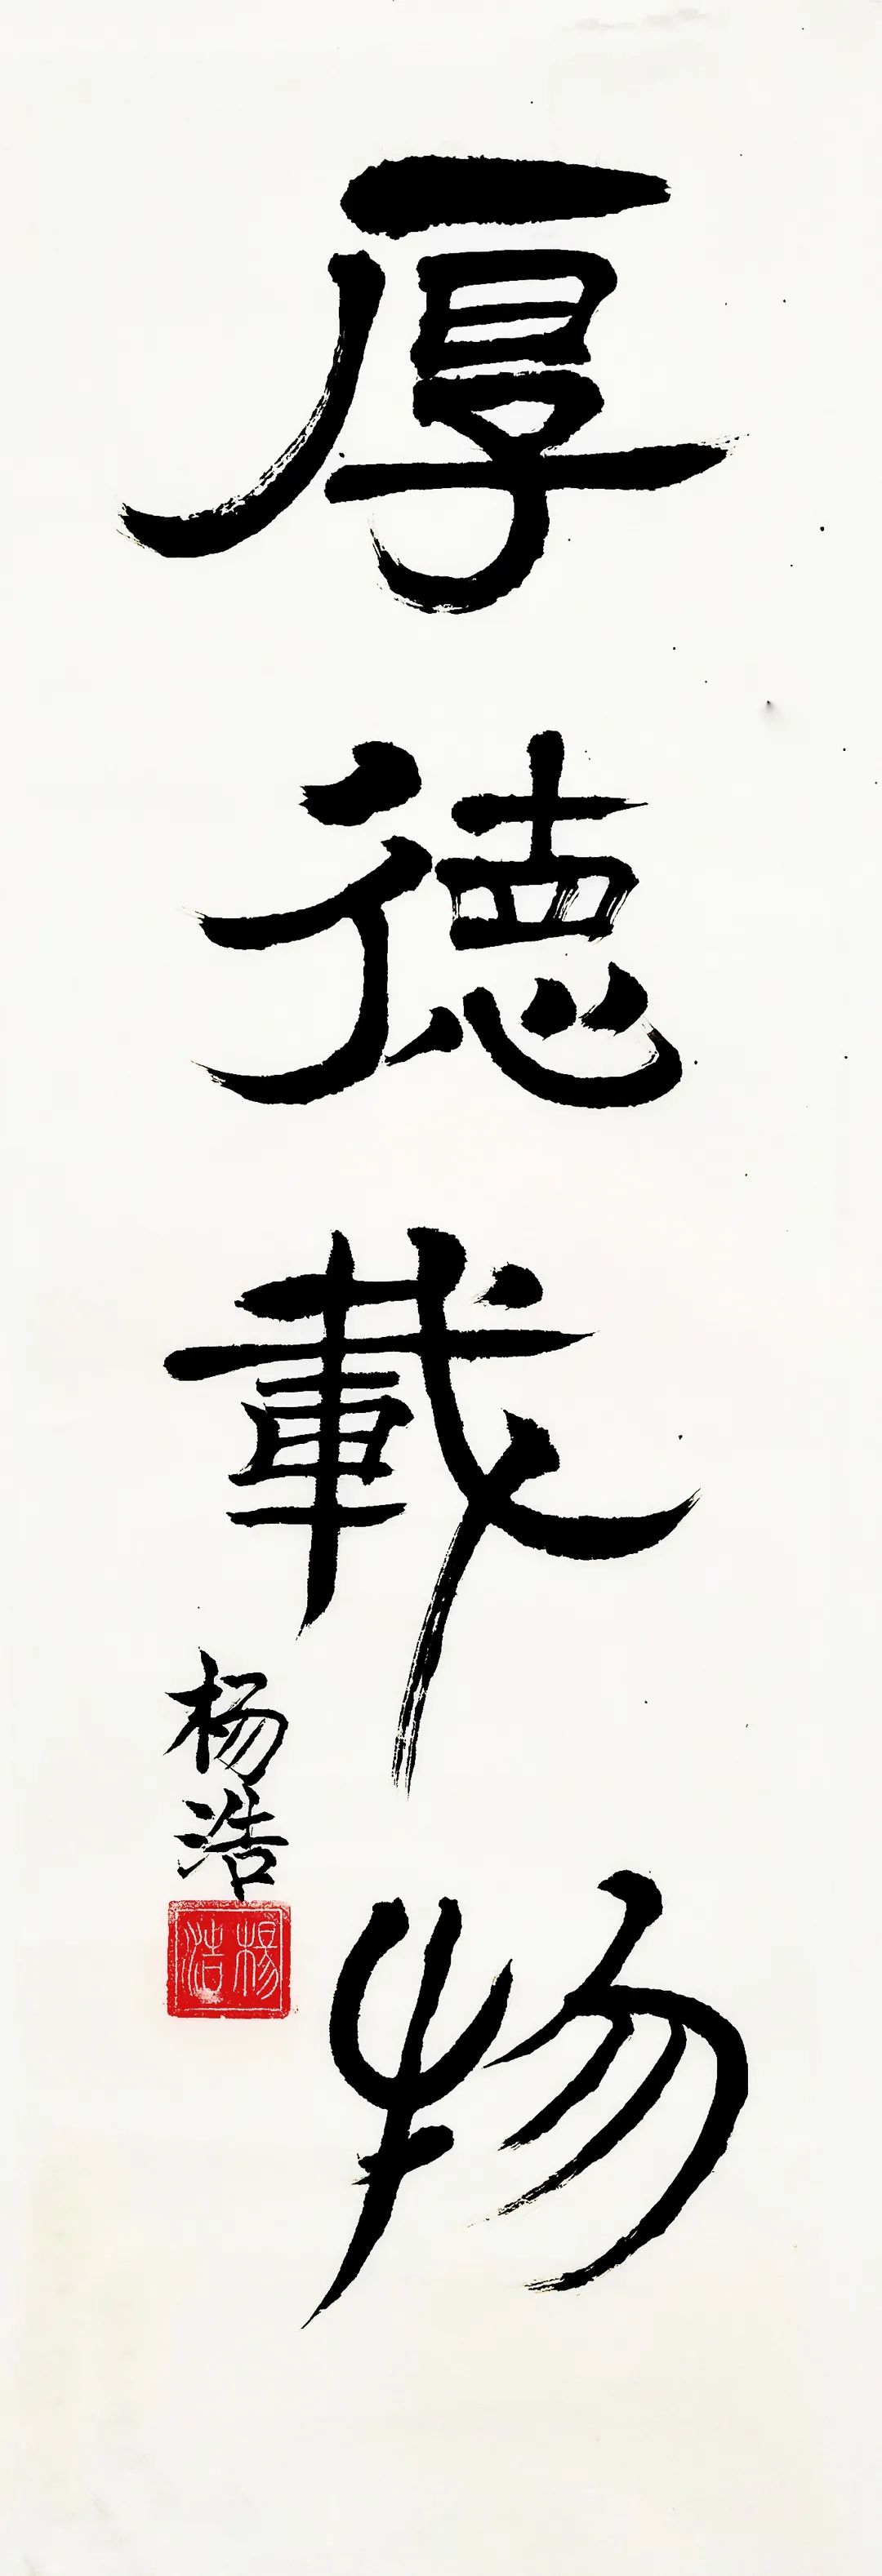 厚德載物
杨浩
楊浩